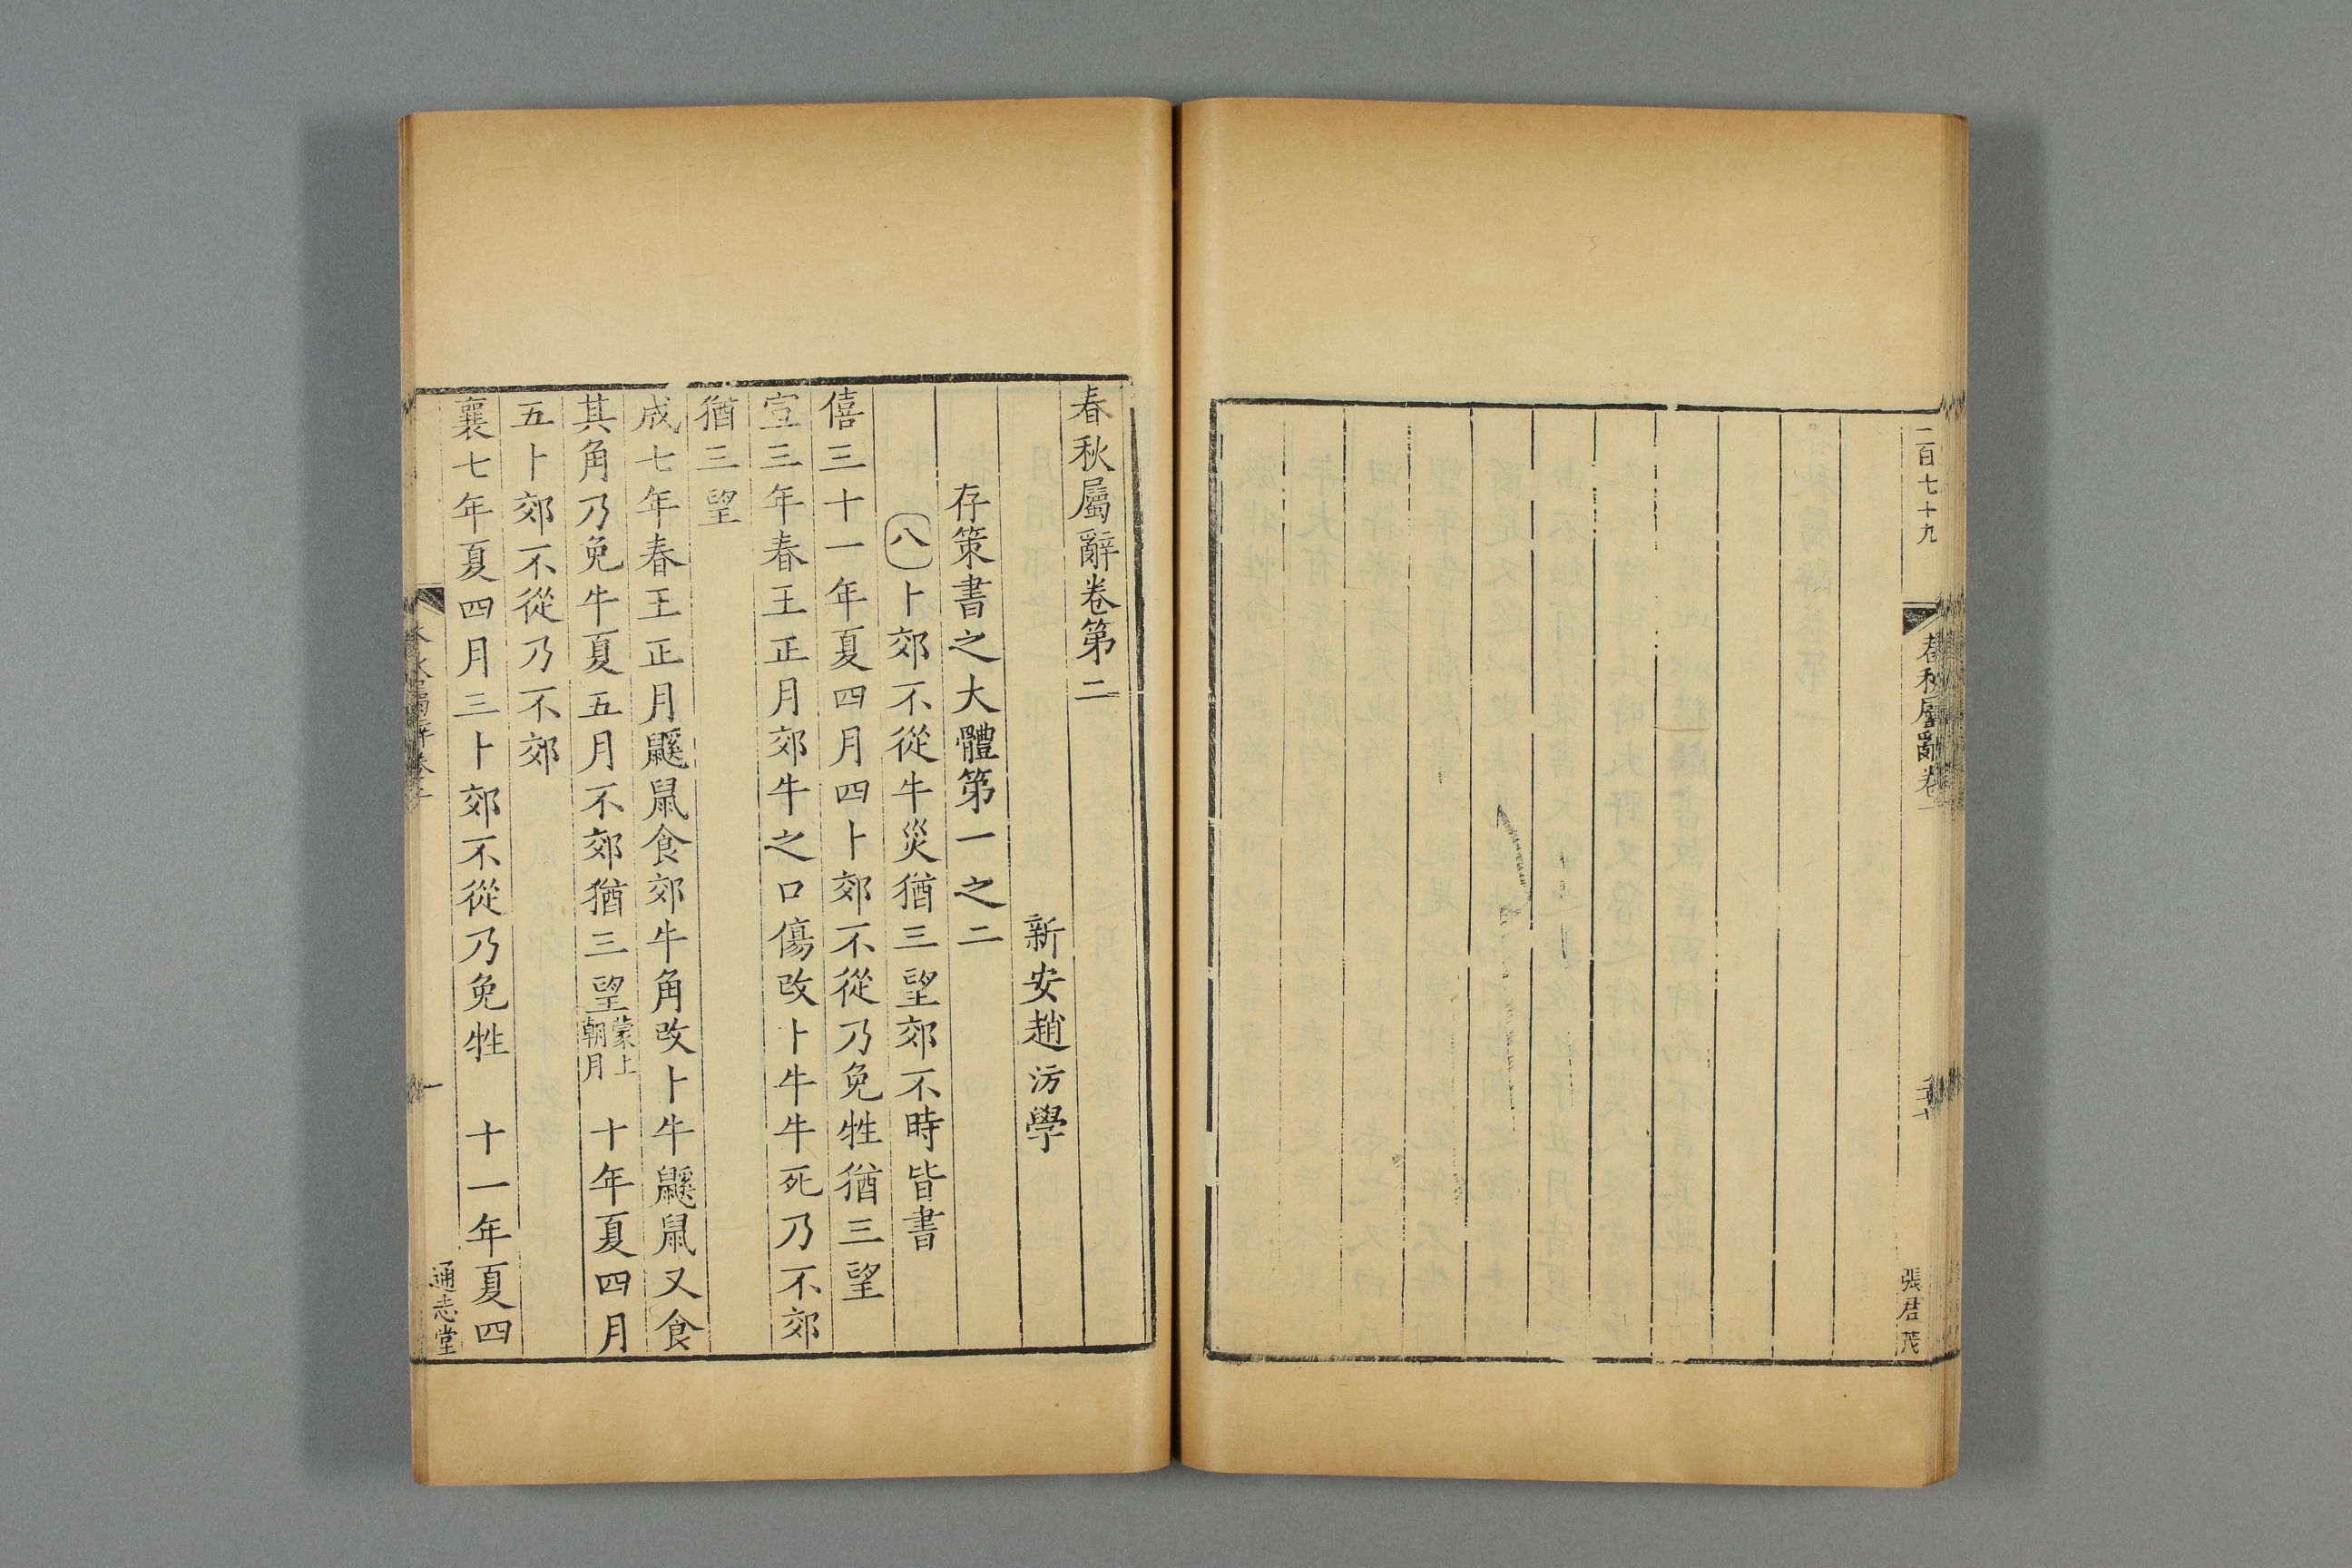 二百七十九
春秋屬辭卷一
張君茂
春秋屬辭卷第二
新安趙汸學
存策書之大體第一之二
八卜郊不從牛災猶三望郊不時皆書
僖三十一年夏四月四卜郊不從乃免牲猶三望
宣三年春王正月郊牛之口傷改卜牛牛死乃不郊
猶三望
成七年春王正月鼷鼠食郊牛角改卜牛鼷鼠又食
其角乃免牛夏五月不郊猶三望蒙上朝月 十年夏四月
五卜郊不從乃不郊
襄七年夏四月三卜郊不從乃免牲 十一年夏四
春秋屬辭卷二
一
通志堂